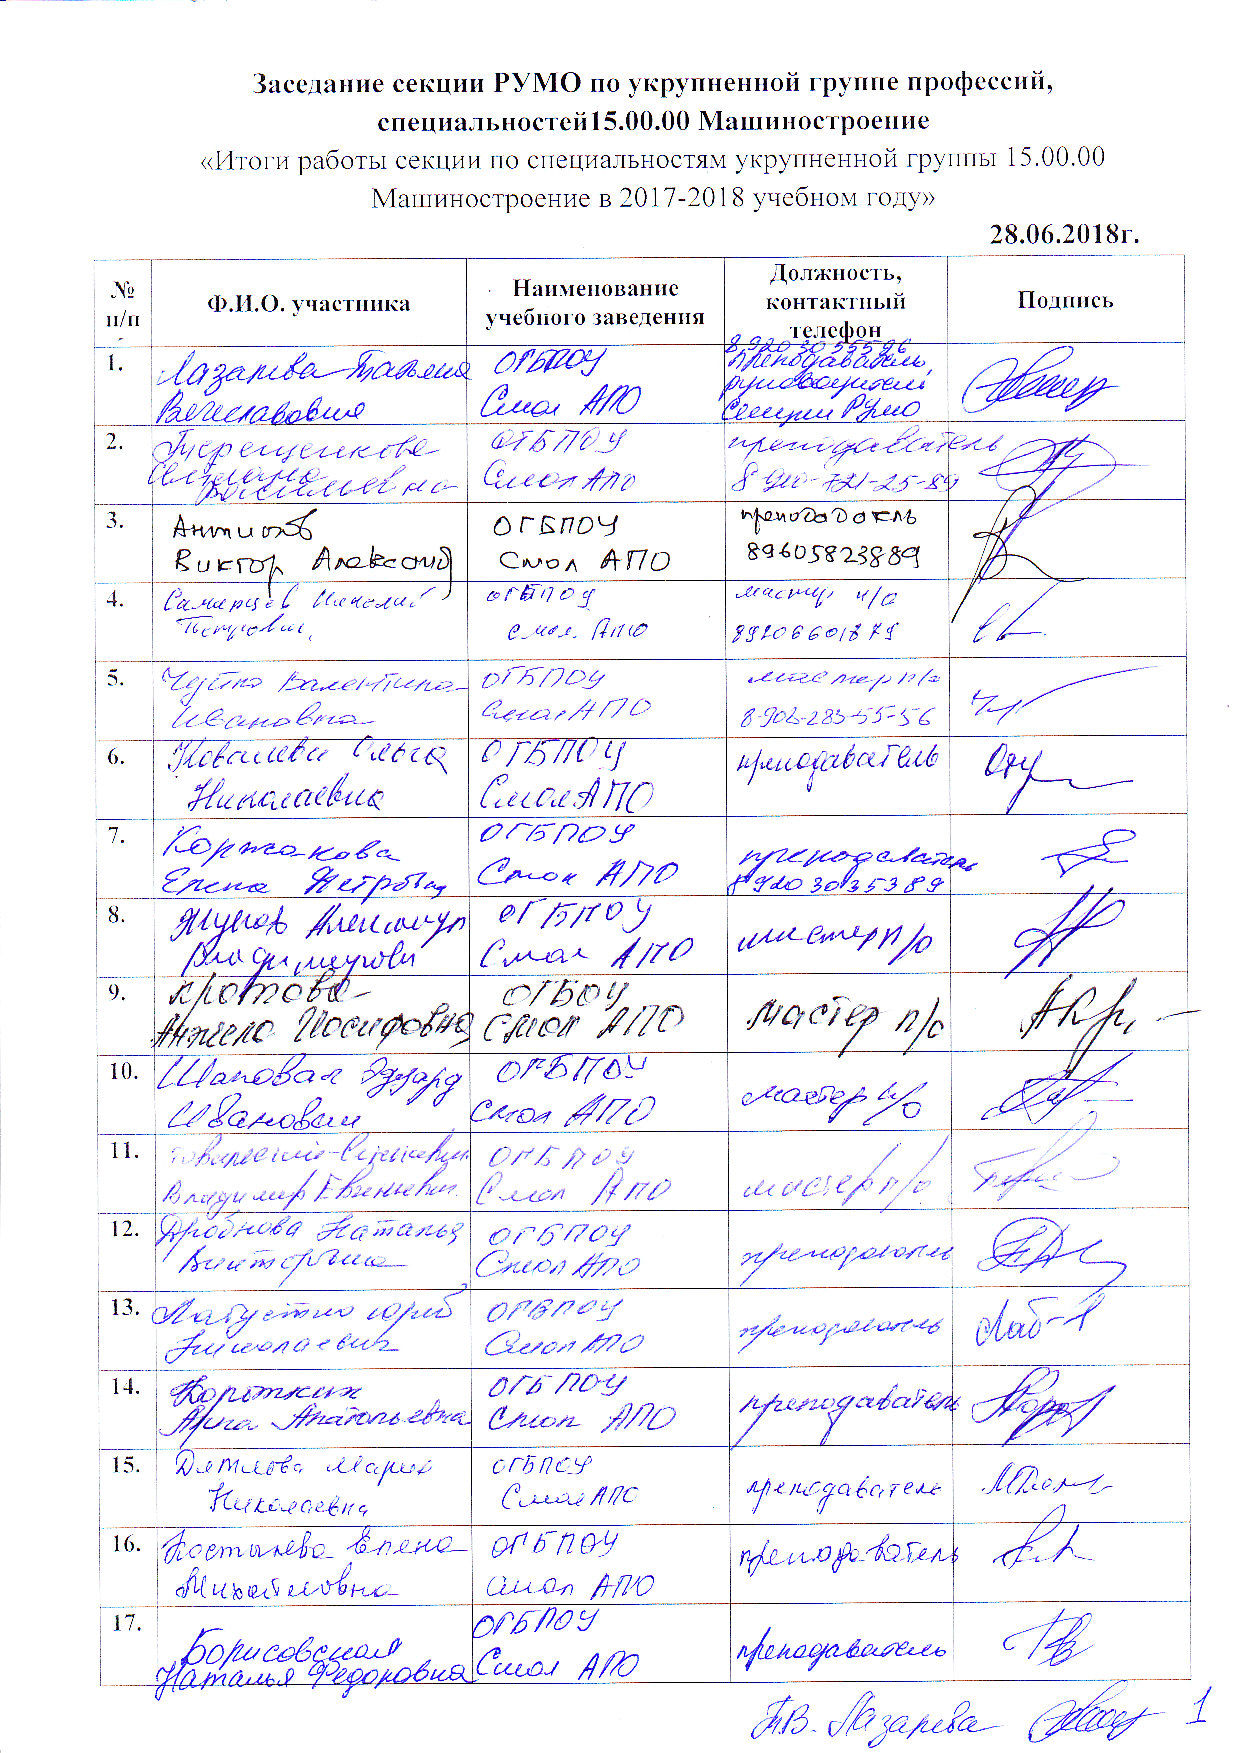 Заседание секции РУМО по укрупненной группе профессий,
специальностей15.00.00 Машиностроение
«Итоги работы секции по специальностям укрупненной группы 15.00.00
Машиностроение в 2017-2018 учебном году»
28.06.2018г.
№
п/п
Ф.И.О. участника
Наименование
учебного заведения
Должность,
контактный
телефон
Подпись
1.
Лазарева Татьяна
Вячеславовна
ОГБПОУ
Смол АПО
89203055596
преподаватель,
руководитель
секции РУМО
2.
Терещенкова
Светлана
Васильевна
ОГБПОУ
Смол АПО
преподаватель
8-910-721-25-89
3.
Антипов
Виктор Александ
ОГБПОУ
Смол АПО
преподаватель
89605823889
4.
Петрович
ОГБПОУ
Смол. АПО
мастер п/о
89206601879
5.
Чуйко Валентина
Ивановна
ОГБПОУ
Смол АПО
мастер п/о
8-902-283-55-56
6.
Ковалева Ольга
Николаевна
ОГБПОУ
Смол АПО
преподаватель
7.
Коржакова
Елена Петровна
ОГБПОУ
Смол АПО
преподаватель
89203035389
8.
Александр
Владимирович
ОГБПОУ
Смол АПО
мастер п/о
9.
Кротова
Анжела Иосифовна
ОГБОУ
Смол АПО
мастер п/о
10.
Шаповал Эдуард
Иванович
ОГБПОУ
Смол АПО
мастер п/о
11.
Владимир Евгеньевич
ОГБПОУ
Смол АПО
мастер п/о
12.
Дробнова Наталья
Викторовна
ОГБПОУ
Смол АПО
преподаватель
13.
Лабустин Юрий
Николаевич
ОГБПОУ
Смол АПО
преподаватель
14.
Коротких
Анна Анатольевна
ОГБПОУ
Смол АПО
преподаватель
15.
Дятлова Мария
Николаевна
ОГБПОУ
Смол АПО
преподаватель
16.
Костылева Елена
Михайловна
ОГБПОУ
Смол АПО
преподаватель
17.
Борисовская
Наталья Федоровна
ОГБПОУ
Смол АПО
преподаватель
Т.В. Лазарева
1